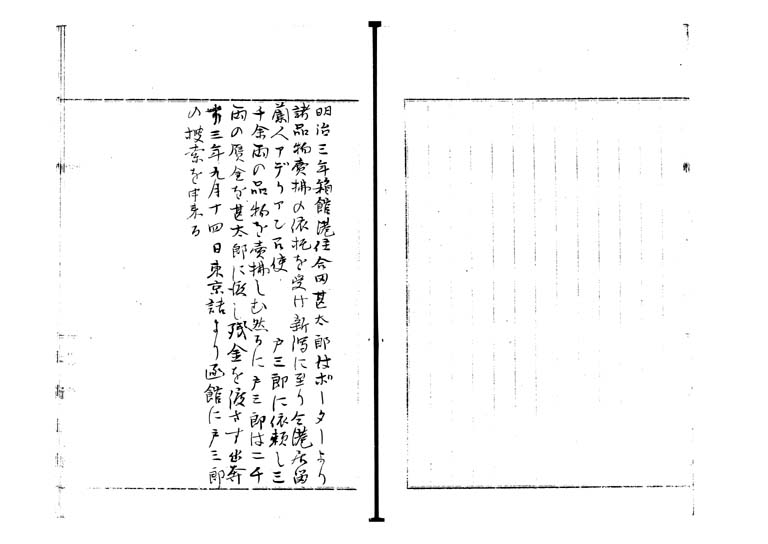 明治三年箱館港住合田甚太郎はポーターより
諸品物賣拂の依托を受け新潟に至り仝港居留
蘭人アデリアン召使 戸三郎に依頼し三
千余両の品物を賣拂しむ然るに戸三郎は二千
両の贋金を甚太郎に渡し残金を渡さす出奔
三年九月十四日東京詰より函館に戸三郎
の捜索を申来る